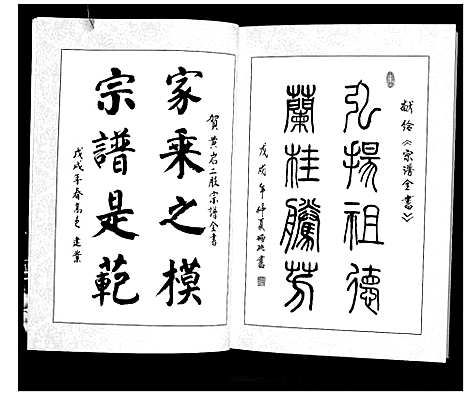 献给《宗谱全书》
弘揚祖德
蘭桂騰芳
戊戌年仲夏
書
賀黄岩二股宗譜全書
家乘之模
宗譜是範
戊戌年春高邑 建業